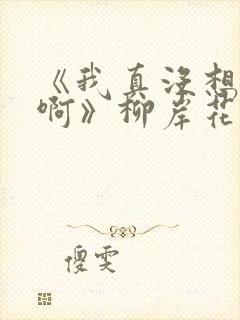 《我真没想
啊》柳岸花
傻雯